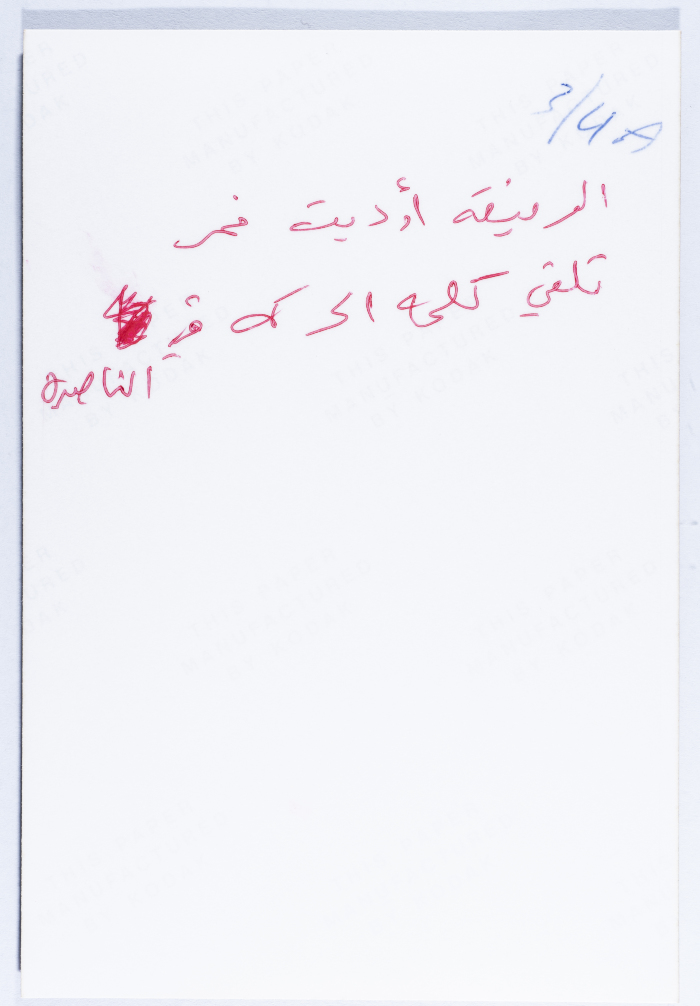 3/4A
الرفيقة أوديت نمر
تلقي كلمة الحركة في
الناصرة
THIS PAPER
MANUFACTURED
BY KODAK